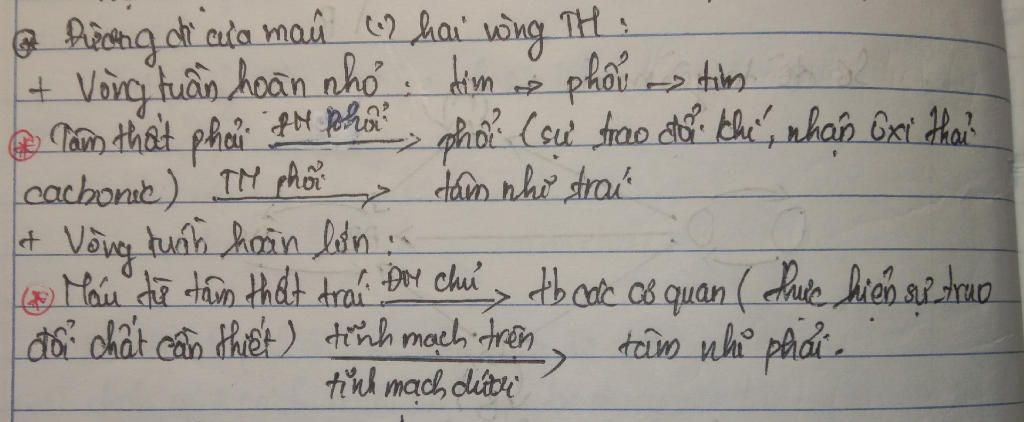 Đường đi của máu (.) hai vòng TH:
+ Vòng tuần hoàn nhỏ: tim → phổi → tim
* Tâm thất phải ĐM phổi → phổi (sự trao đổi khí, nhận ôxi thải
cacbonic) TM phổi → tâm nhĩ trái
+ Vòng tuần hoàn lớn:
* Máu từ tâm thất trái ĐM chủ → tb các cơ quan (thực hiện sự trao
đổi chất cần thiết) tĩnh mạch trên → tâm nhĩ phải.
tĩnh mạch dưới